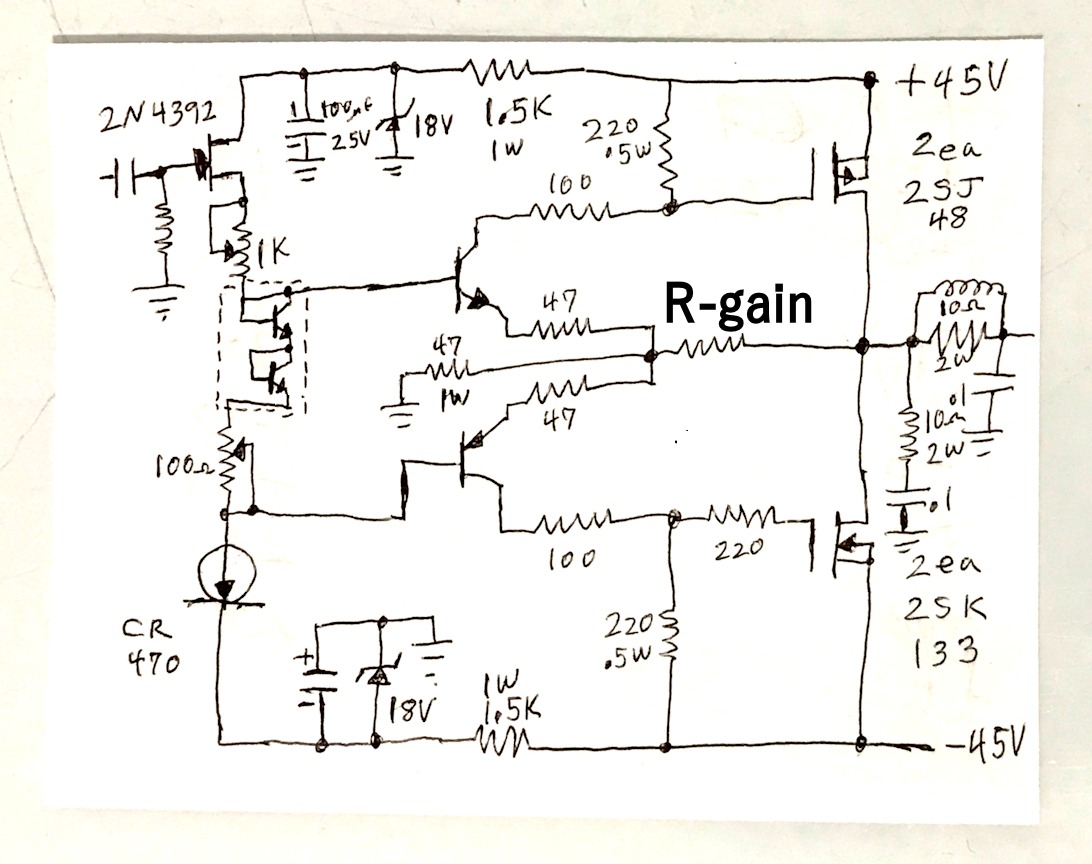 2N4392
1
100µf
25V
18V
1.5K
1W
+45V
220
.5W
100
2ea
2SJ
48
1K
47
R-gain
47
1W
47
10Ω
2W
.1
10Ω
2W
.1
100Ω
100
220
2ea
2SK
133
CR
470
+
-
18V
1W
1.5K
220
.5W
-45V